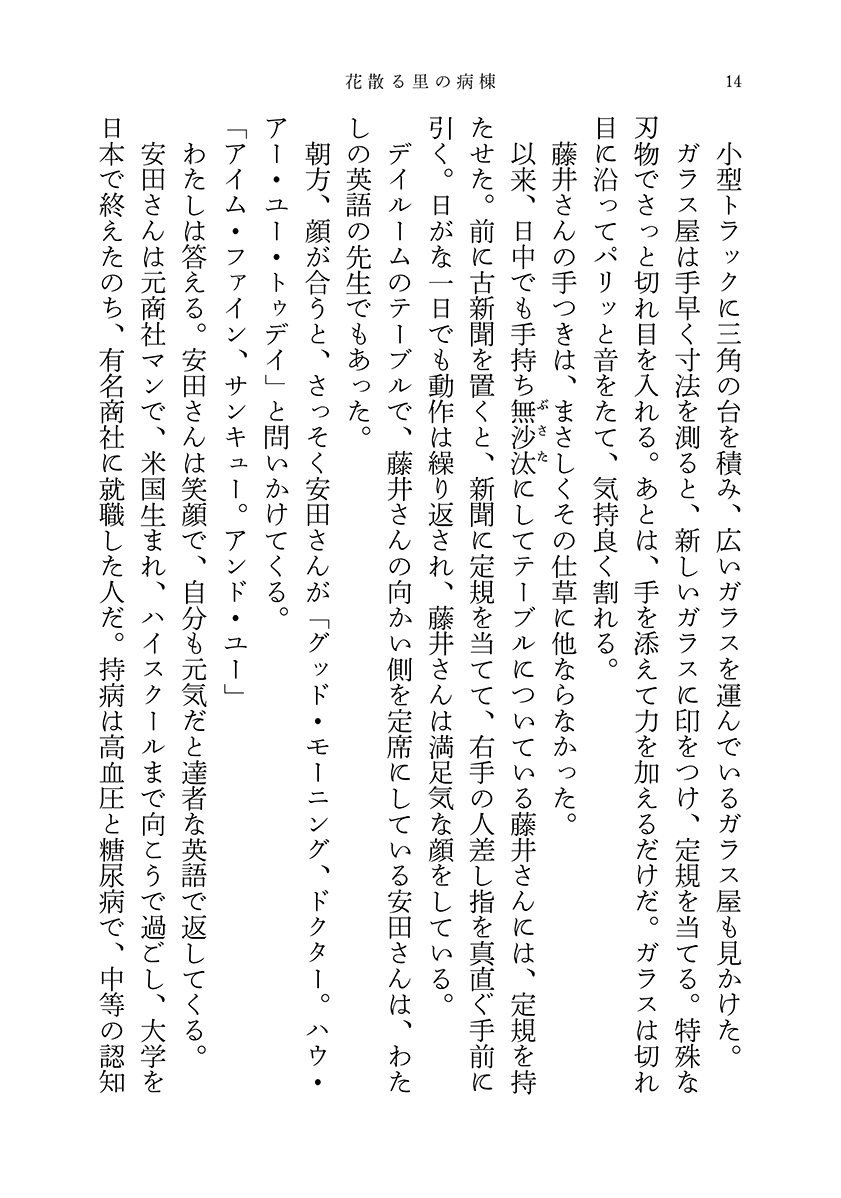 花散る里の病棟
14
小型トラックに三角の台を積み、広いガラスを運んでいるガラス屋も見かけた。
ガラス屋は手早く寸法を測ると、新しいガラスに印をつけ、定規を当てる。特殊な
刃物でさっと切れ目を入れる。あとは、手を添えて力を加えるだけだ。ガラスは切れ
目に沿ってパリッと音をたて、気持良く割れる。
藤井さんの手つきは、まさしくその仕草に他ならなかった。
以来、日中でも手持ち無沙汰にしてテーブルについている藤井さんには、定規を持
ぶさた
たせた。前に古新聞を置くと、新聞に定規を当てて、右手の人差し指を真直ぐ手前に
引く。日がな一日でも動作は繰り返され、藤井さんは満足気な顔をしている。
デイルームのテーブルで、藤井さんの向かい側を定席にしている安田さんは、わた
しの英語の先生でもあった。
朝方、顔が合うと、さっそく安田さんが「グッド・モーニング、ドクター。ハウ・
アー・ユー・トゥデイ」と問いかけてくる。
「アイム・ファイン、サンキュー。アンド・ユー」
わたしは答える。安田さんは笑顔で、自分も元気だと達者な英語で返してくる。
安田さんは元商社マンで、米国生まれ、ハイスクールまで向こうで過ごし、大学を
日本で終えたのち、有名商社に就職した人だ。持病は高血圧と糖尿病で、中等の認知